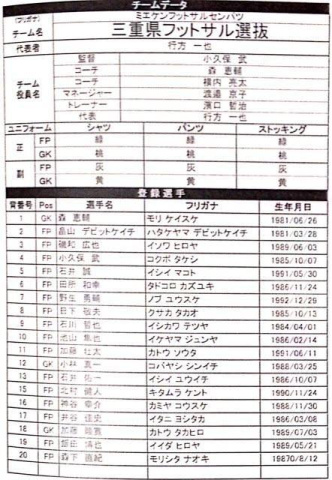 チームデータ
(フリガナ) ミエケンフットサルセンバツ
チーム名 三重県フットサル選抜
代表者 行方 一也
チーム役員名
監督 小久保 武
コーチ 森 恵輔
コーチ 横内 亮太
マネージャー 渡邉 京子
トレーナー 濱口 哲治
代表 行方 一也
ユニフォーム シャツ パンツ ストッキング
正 FP 緑 緑 緑
GK 桃 桃 桃
副 FP 灰 灰 灰
GK 黄 黄 黄
登録選手
背番号 Pos 選手名 フリガナ 生年月日
1 GK 森 恵輔 モリ ケイスケ 1981/06/26
2 FP 畠山 デビットケイチ ハタケヤマ デビットケイチ 1981/03/28
3 FP 磯和 広也 イソワ ヒロヤ 1989/06/03
4 FP 小久保 武 コクボ タケシ 1985/10/07
5 FP 石井 誠 イシイ マコト 1991/05/30
6 FP 田所 和幸 タドコロ カズユキ 1986/11/24
7 FP 野生 ノブ ユウスケ 1992/12/29
8 FP 日下 敬夫 クサカ タカオ 1985/10/13
9 FP 石川 哲也 イシカワ テツヤ 1984/04/01
10 FP 池山 隼也 イケヤマ ジュンヤ 1986/02/14
11 FP 加藤 壮太 カトウ ソウタ 1991/06/11
12 GK 小林 真一 コバヤシ シンイチ 1988/03/25
13 FP 石井 祐一 イシイ ユウイチ 1986/10/07
15 FP 北村 健人 キタムラ ケント 1990/11/24
16 FP 神谷 幸介 カミヤ コウスケ 1988/11/30
17 FP 井谷 佳史 イタニ ヨシタカ 1986/03/08
18 GK 加藤 カトウ タカヒロ 1989/07/03
19 FP 飯田 博也 イイダ ヒロヤ 1989/05/21
20 FP 森下 直紀 モリシタ ナオキ 19870/8/12